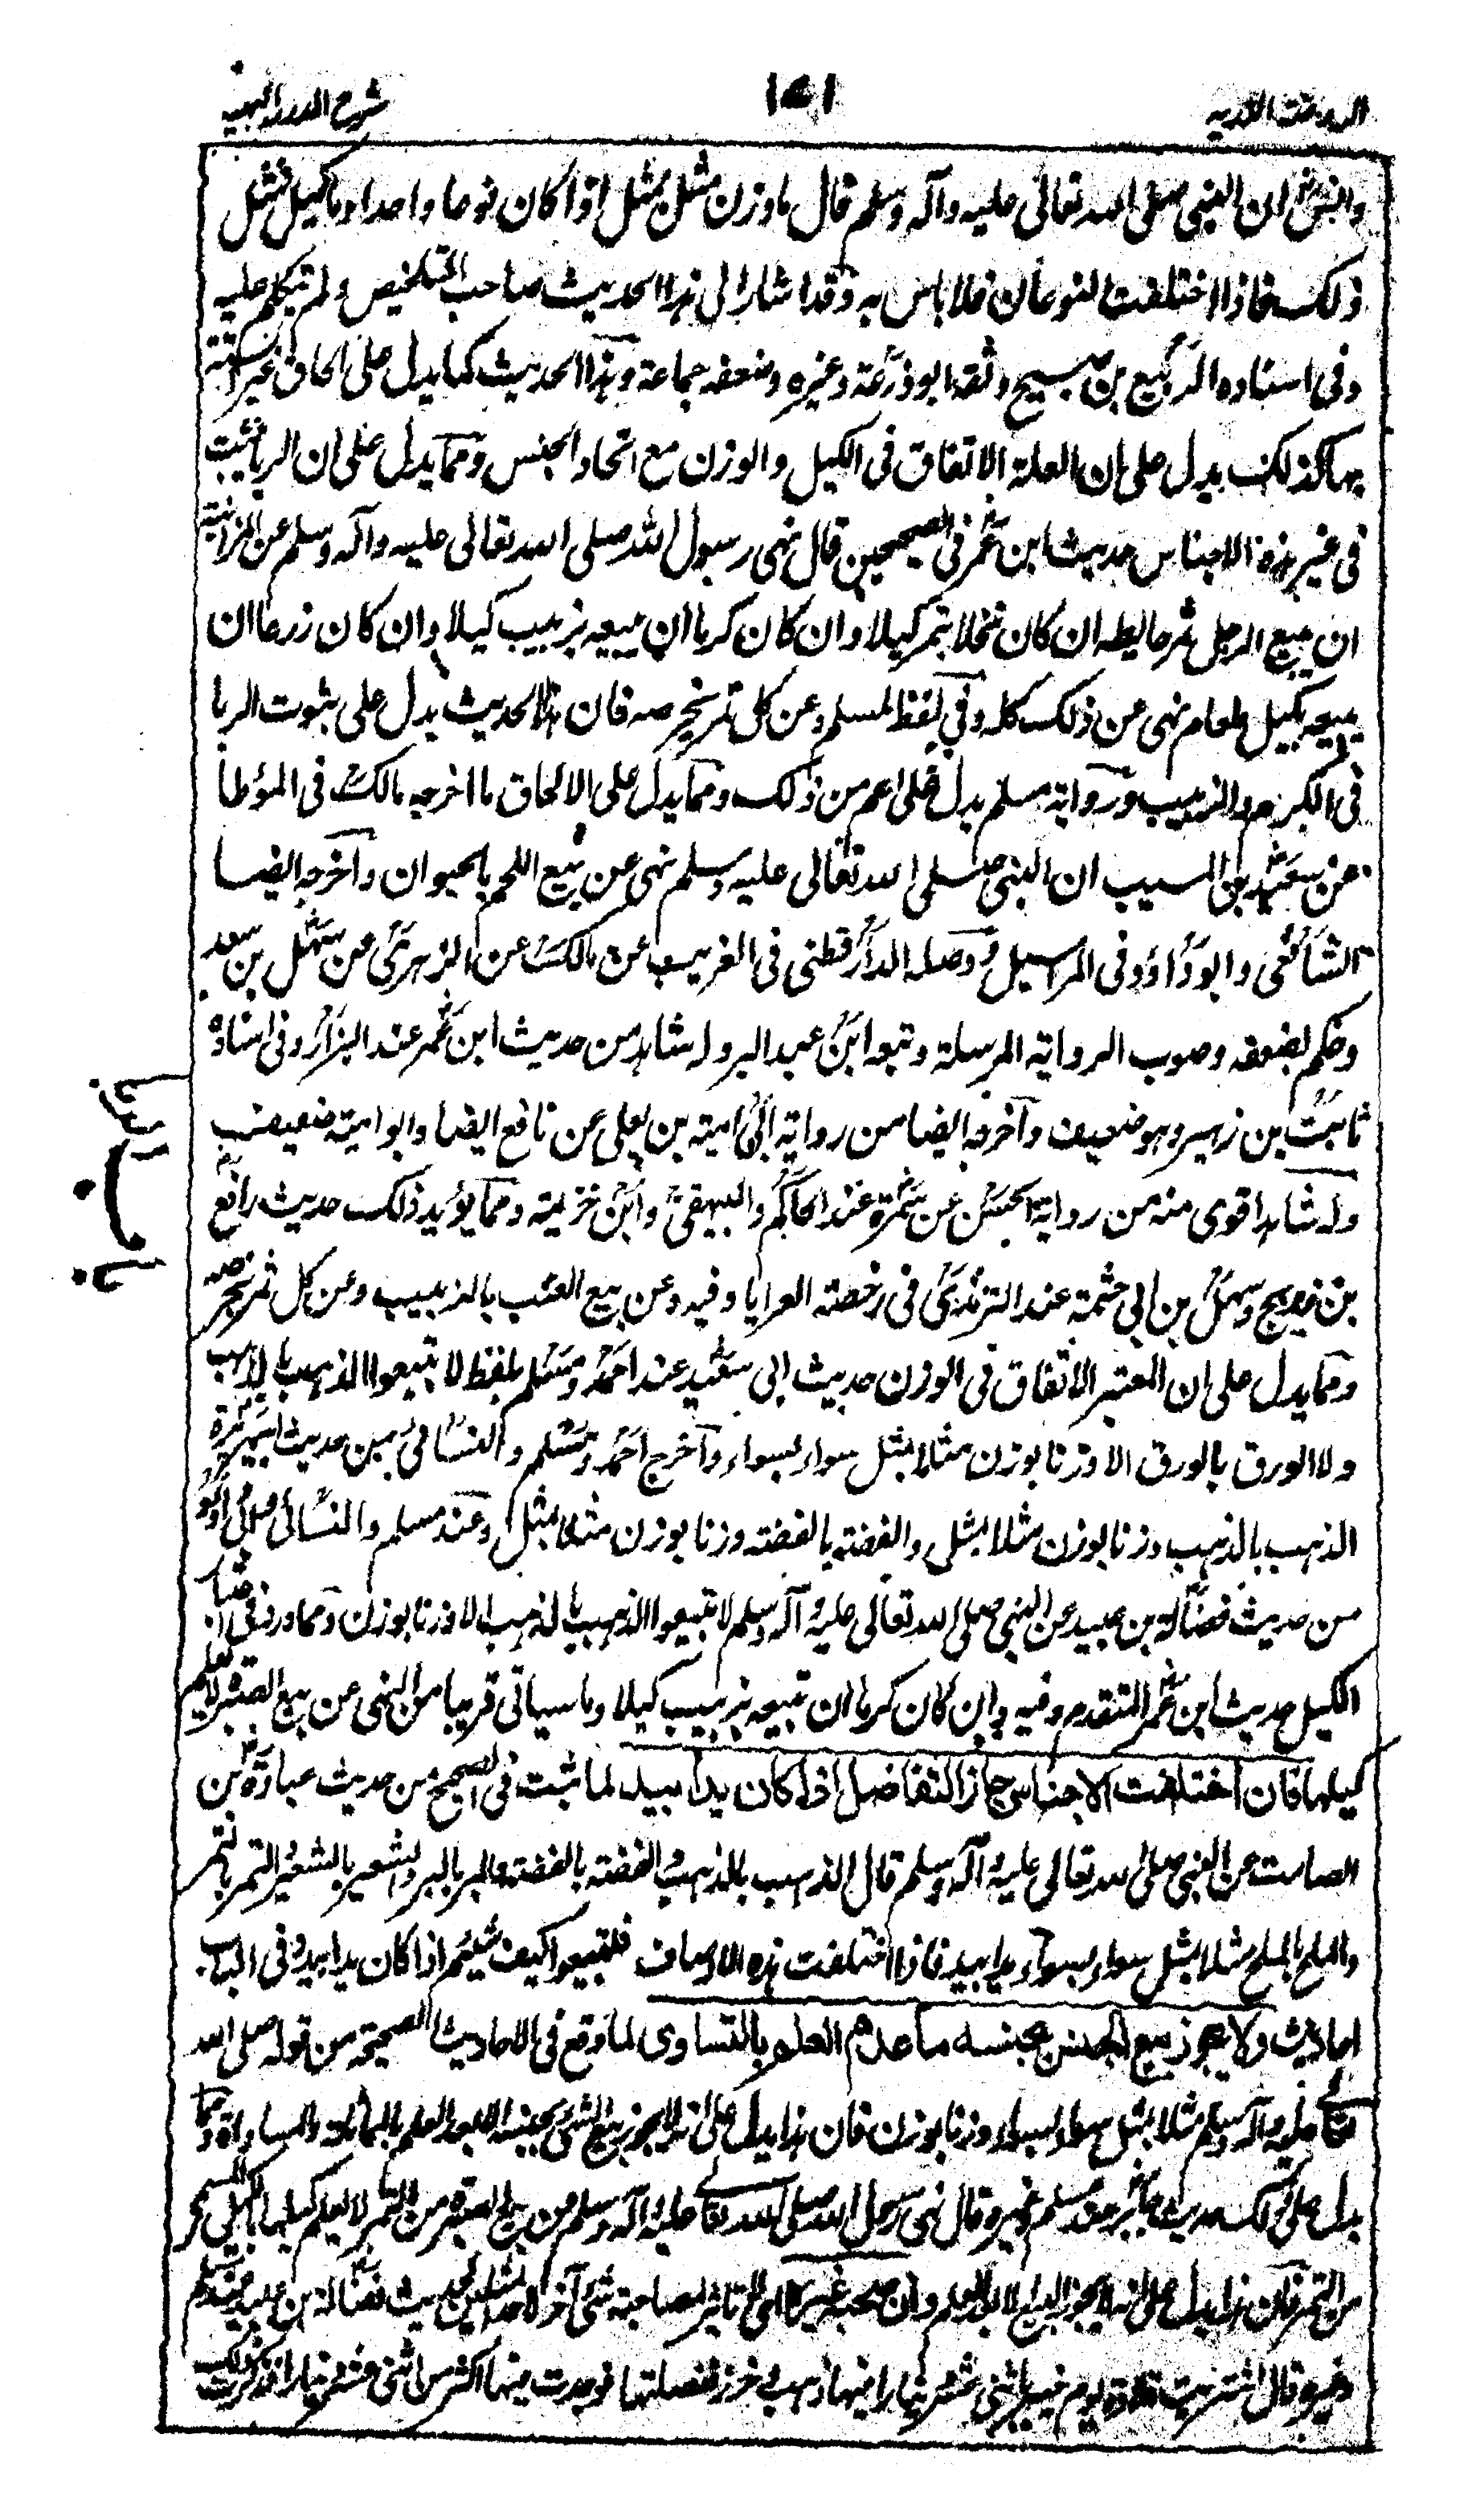 الروضة الندية
١٥١
شرح الدرر البهية
وانس ان النبي صلى الله تعالى عليه وآله وسلم قال ما وزن مثل بمثل اذا كان نوعا واحدا وما كيل فمثل
ذلك فاذا اختلفت النوعان فلا باس به وقد اشار الى هذا الحديث صاحب التلخيص ولم يتكلم عليه
وفي اسناده الربيع بن صبيح وثقه ابو زرعة وغيره وضعفه جماعة وهذا الحديث كما يدل على الحاق غير الستة
بها كذلك يدل على ان العلة الاتفاق في الكيل والوزن مع اتحاد الجنس ومما يدل على ان الربا يثبت
في غير هذه الاجناس حديث ابن عمر في الصحيحين قال نهى رسول الله صلى الله تعالى عليه وآله وسلم عن المزابنة
ان يبيع الرجل ثمر حايطه ان كان نخلا بتمر كيلا وان كان كرما ان يبيعه بزبيب كيلا وان كان زرعا ان
يبيعه بكيل طعام نهى عن ذلك كله وفي لفظ لمسلم وعن كل ثمر بخرصه فان هذا الحديث يدل على ثبوت الربا
في الكرم والزبيب ورواية مسلم يدل على اعم من ذلك ومما يدل على الالحاق ما اخرجه مالك في المؤطا
عن سعيد بن المسيب ان النبي صلى الله تعالى عليه وسلم نهى عن بيع اللحم بالحيوان وآخرجه ايضا
الشافعي وابو داؤد في المراسيل ووصله الدارقطني في الغريب عن مالك عن الزهري عن سهل بن سعد
وحكم بضعفه وصوب الرواية المرسلة وتبعه ابن عبد البر وله شاهد من حديث ابن عمر عند البزار وفي اسناده
ثابت بن زهير وهو ضعيف وآخرجه ايضا من رواية ابي امية بن يعلى عن نافع ايضا وابو امية ضعيف
وله شاهد اقوى منه من رواية الحسن عن سمرة عند الحاكم والبيهقي وابن خزيمة ومما يؤيد ذلك حديث رافع
بن خديج وسهل بن ابي حثمة عند الترمذي في رخصة العرايا وفيه وعن بيع العنب بالزبيب وعن كل ثمر بخرصه
ومما يدل على ان المعتبر الاتفاق في الوزن حديث ابي سعيد عند احمد ومسلم بلفظ لا تبيعوا الذهب بالذهب
ولا الورق بالورق الا وزنا بوزن مثلا بمثل سواء بسواء وآخرج احمد ومسلم والنسائي من حديث ابي هريرة
الذهب بالذهب وزنا بوزن مثلا بمثل والفضة بالفضة وزنا بوزن مثلا بمثل وعند مسلم والنسائي وابي داؤد
من حديث فضالة بن عبيد عن النبي صلى الله تعالى عليه وآله وسلم لا تبيعوا الذهب بالذهب الا وزنا بوزن ومما ورد في اعتبار
الكيل حديث ابن عمر المتقدم وفيه وان كان كرما ان تبيعه بزبيب كيلا وما سياتي قريبا من النهي عن بيع الصبرة لا يعلم
كيلها فان اختلفت الاجناس جاز التفاضل اذا كان يدا بيد لما ثبت في الصحيح من حديث عبادة بن
الصامت عن النبي صلى الله تعالى عليه وآله وسلم قال الذهب بالذهب والفضة بالفضة والبر بالبر والشعير بالشعير والتمر بالتمر
والملح بالملح مثلا بمثل سواء بسواء يدا بيد فاذا اختلفت هذه الاوصاف فلتبيعوا كيف شئتم اذا كان يدا بيد وفي الباب
احاديث ولا يجوز بيع الجنس بجنسه مع عدم العلم بالتساوي لما وقع في الاحاديث الصحيحة من قوله صلى الله
تعالى عليه وآله وسلم مثلا بمثل سواء بسواء وزنا بوزن فان هذا يدل على انه لا يجوز بيع الشئ بجنسه الا بعد العلم بالمماثلة والمساواة ومما
يدل على ذلك حديث جابر عند مسلم وغيره قال نهى رسول الله صلى الله تعالى عليه وآله وسلم عن بيع الصبرة من التمر لا يعلم كيلها بالكيل المسمى
من التمر فان هذا يدل على انه لا يجوز البيع الا بعد العلم وان صحبه غيره اي لا تاثير لمصاحبة شئ آخر لاحد المثلين لحديث فضالة بن عبيد عند مسلم
وغيره قال اشتريت قلادة يوم خيبر باثني عشر دينارا فيها ذهب وخرز ففصلتها فوجدت فيها اكثر من اثني عشر دينارا فذكرت ذلك